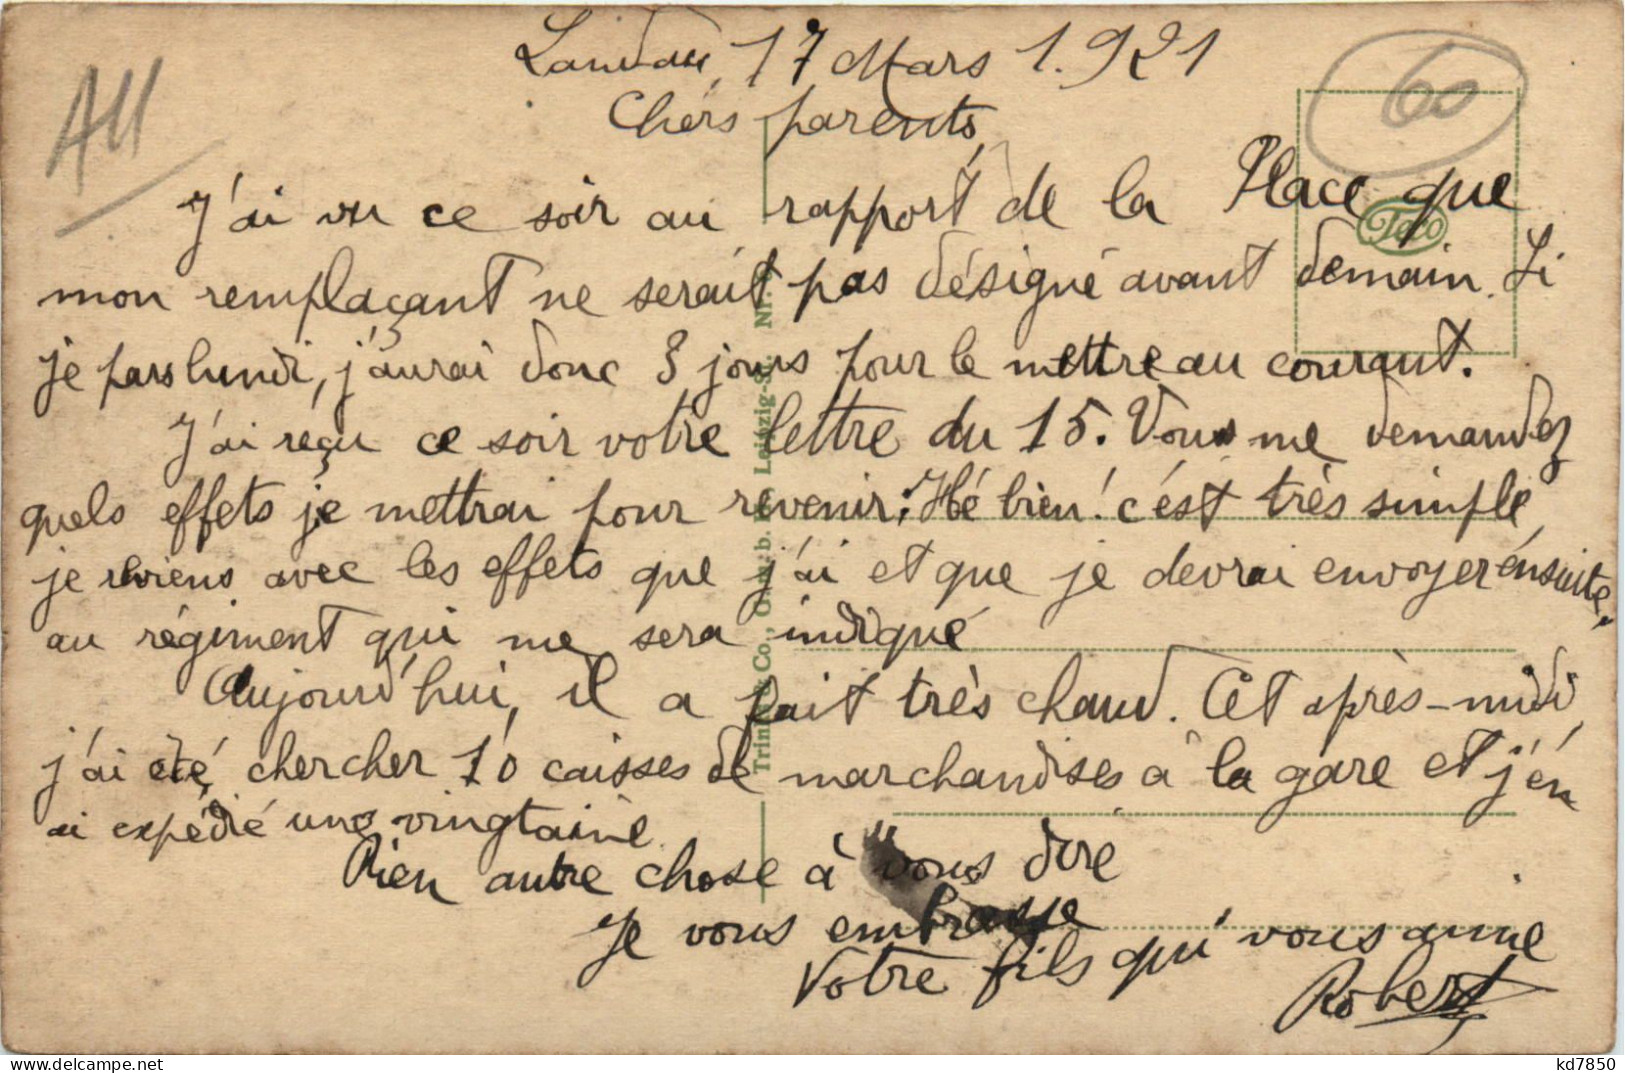 Landau, 17 Mars 1.921
60
All
Chers parents,
J'ai vu ce soir au rapport de la Place que
Teco
mon remplaçant ne serait pas désigné avant demain. Si
je pars lundi, j'aurai donc 3 jours pour le mettre au courant.
J'ai reçu ce soir votre lettre du 15. Vous me demandez
quels effets je mettrai pour revenir; Hé bien! c'est très simple,
je reviens avec les effets que j'ai et que je devrai envoyer ensuite,
au régiment qui me sera indiqué
Aujourd'hui, il a fait très chaud. Cet après-midi,
j'ai été chercher 10 caisses de marchandises à la gare et j'en
ai expédié une vingtaine.
Rien autre chose à vous dire
Je vous embrasse
Votre fils qui vous aime
Robert
Trinks & Co., G.m.b.H., Leipzig-S. Nr.
kd7850